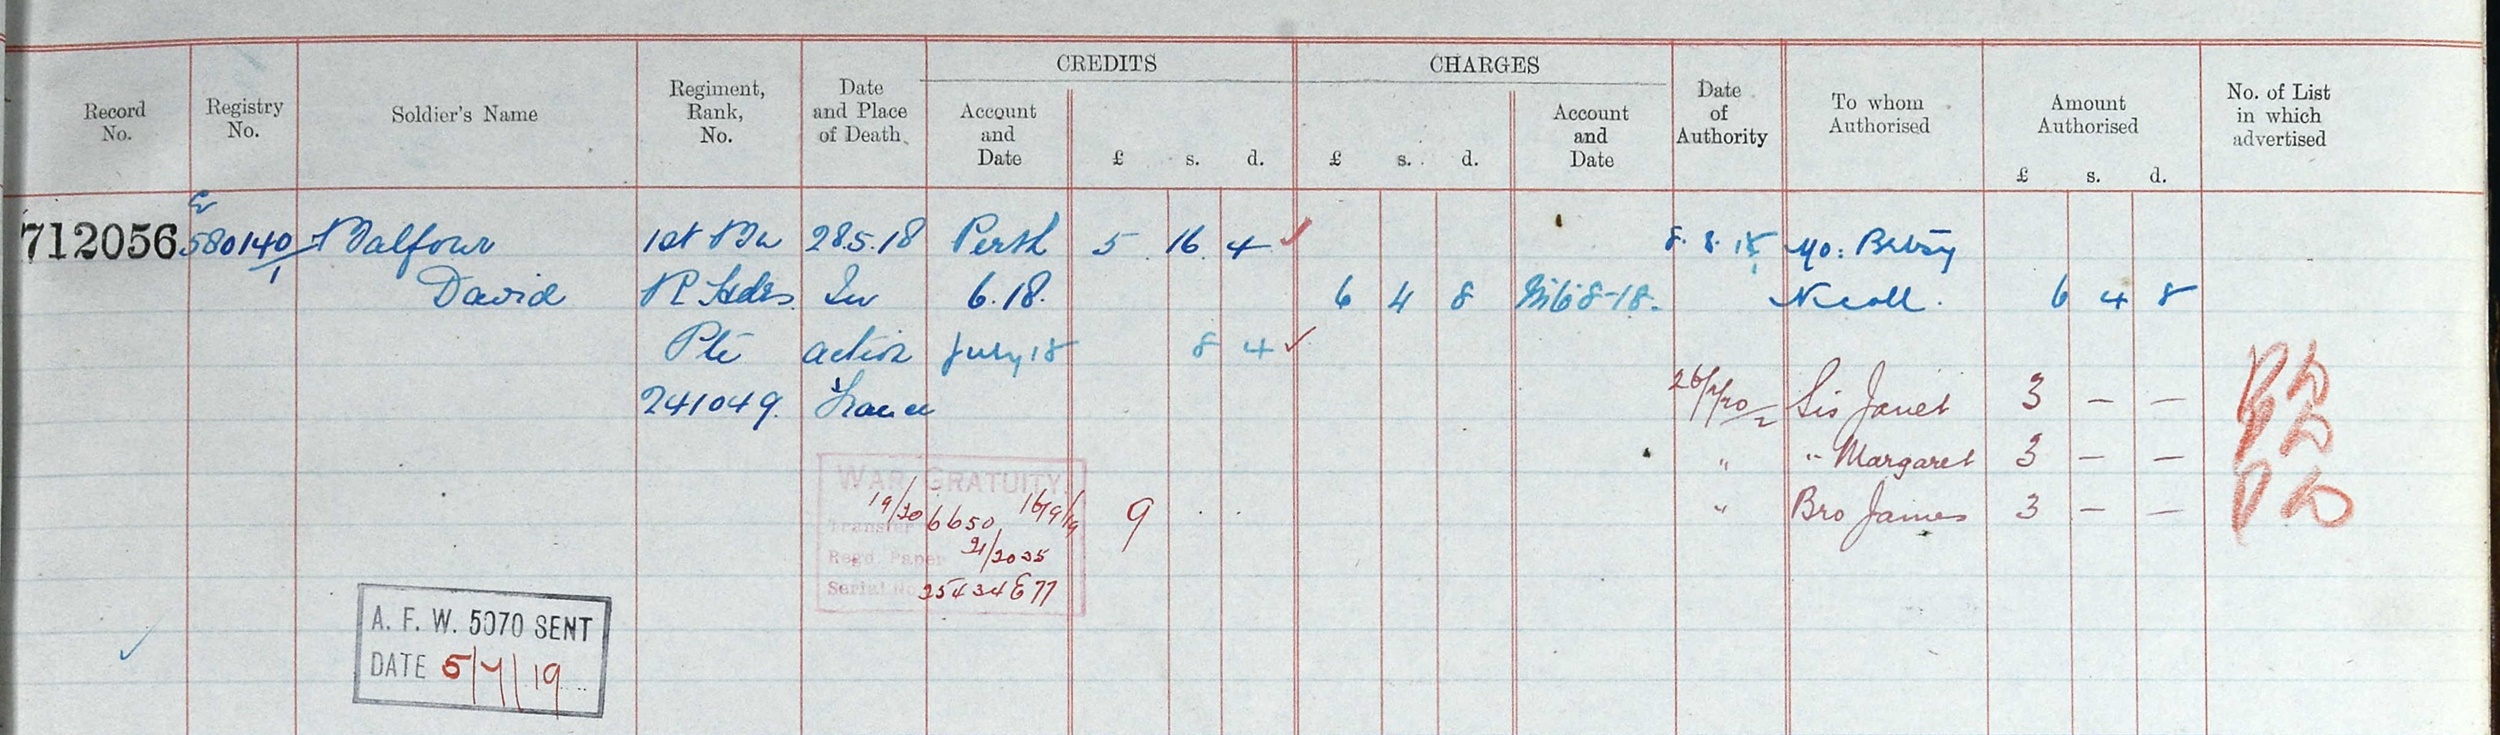 CREDITS CHARGES
Record No. Registry No. Soldier's Name Regiment, Rank, No. Date and Place of Death. Account and Date £ s. d. £ s. d. Account and Date Date of Authority To whom Authorised Amount Authorised £ s. d. No. of List in which advertised
E
712056 580140/1 Balfour 1st Bn 28.5.18 Perth 5 16 4 ✓ 8.8.18 Mo: Betsy
David R Hdrs In 6.18. 6 4 8 8-18. Nicoll. 6 4 8
Pte action July 18 8 4 ✓
241049. France 26/2/20 Sis Janet 3 — —
" " Margaret 3 — —
WAR GRATUITY.
19/20 6650 16/9/19 9 . . " Bro James 3 — —
Transfer
21/2035
Regd. Paper
Serial No.
A. F. W. 5070 SENT
✓ DATE 5/7/19